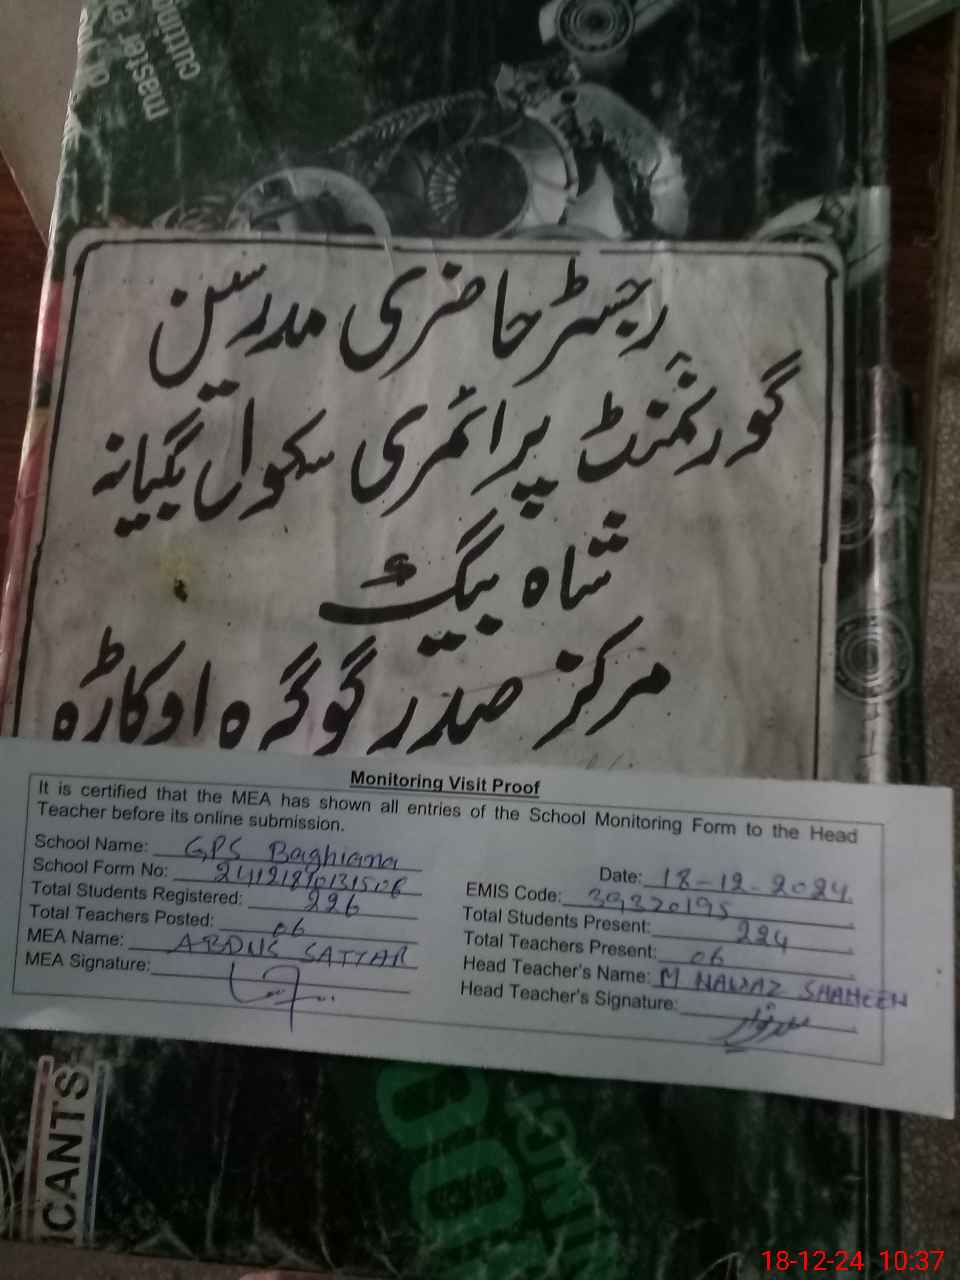 master
cutting
رجسٹر حاضری مدرسین
گورنمنٹ پرائمری سکول بگیانہ
شاہ بیگ
مرکز صدر گوگیرہ اوکاڑہ
Monitoring Visit Proof
It is certified that the MEA has shown all entries of the School Monitoring Form to the Head
Teacher before its online submission.
School Name: GPS Baghiana
Date: 18-12-2024
School Form No:
EMIS Code: 39320195
Total Students Registered: 226
Total Students Present: 224
Total Teachers Posted: 06
Total Teachers Present: 06
MEA Name: ABDUS SATTAR
Head Teacher's Name: M NAWAZ SHAHEEN
MEA Signature:
Head Teacher's Signature:
ICANTS
18-12-24 10:37